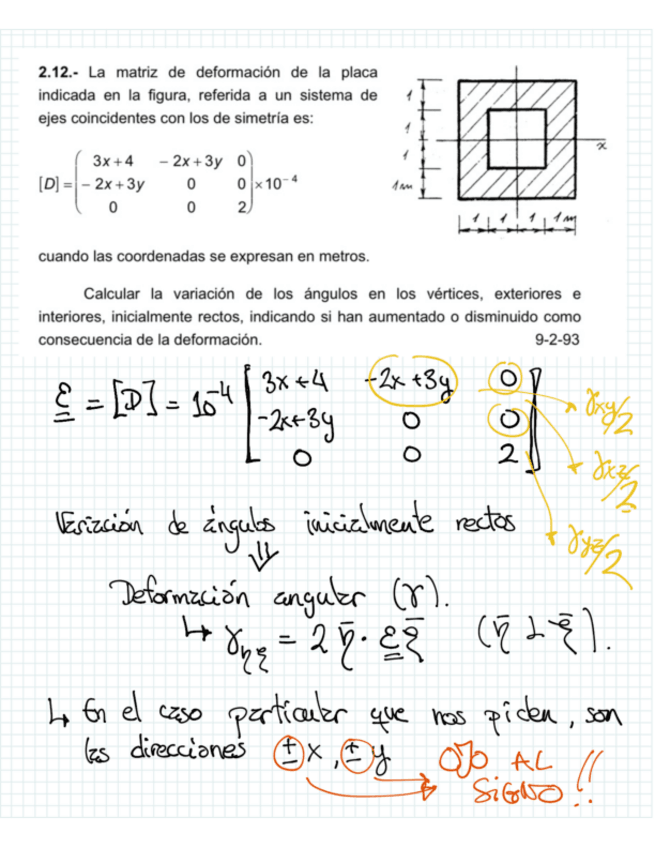 2.12.- La matriz de deformación de la placa
indicada en la figura, referida a un sistema de
ejes coincidentes con los de simetría es:
3x+4 - 2x+3y 0
[D] = - 2x+3y 0 0 ×10⁻⁴
0 0 2
1
1
1
1 m
x
1 1 1 1 m
cuando las coordenadas se expresan en metros.
Calcular la variación de los ángulos en los vértices, exteriores e
interiores, inicialmente rectos, indicando si han aumentado o disminuido como
consecuencia de la deformación. 9-2-93
3x+4 -2x+3y 0
ε = [D] = 10⁻⁴ -2x+3y 0 0
0 0 2
γxy/2
γxz/2
γyz/2
Variación de ángulos inicialmente rectos
⇓
Deformación angular (γ).
↳ γηξ = 2 η̄ · ε ξ̄ (η̄ ⊥ ξ̄).
↳ En el caso particular que nos piden, son
las direcciones ±x, ±y
OJO AL
SIGNO!!